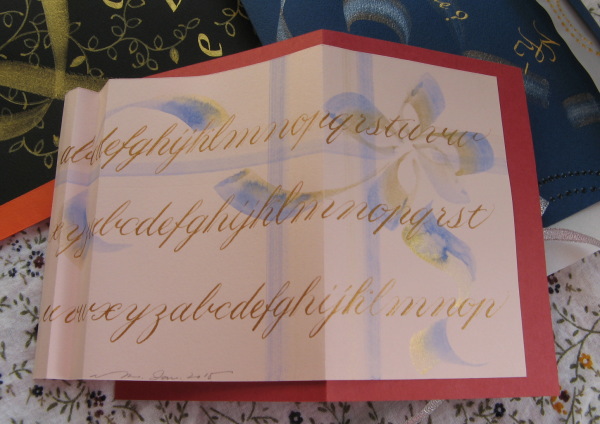 abcdefghijklmnopqrstuvw
xyzabcdefghijklmnopqrst
uvwxyzabcdefghijklmnop